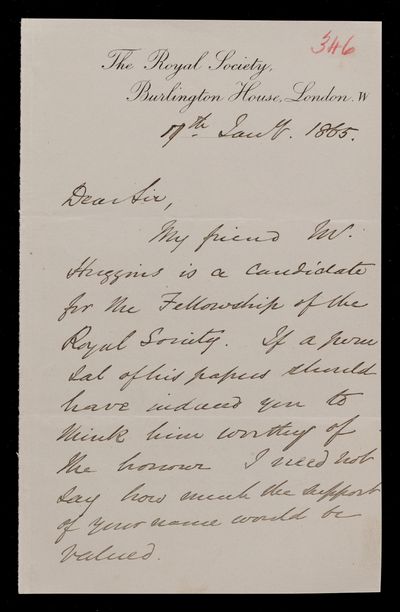 346
The Royal Society,
Burlington House, London. W
17th Jany. 1865.
Dear Sir,
My friend Mr.
Huggins is a candidate
for the Fellowship of the
Royal Society. If a peru
sal of his papers should
have induced you to
think him worthy of
the honour I need not
say how much the support
of your name would be
valued.